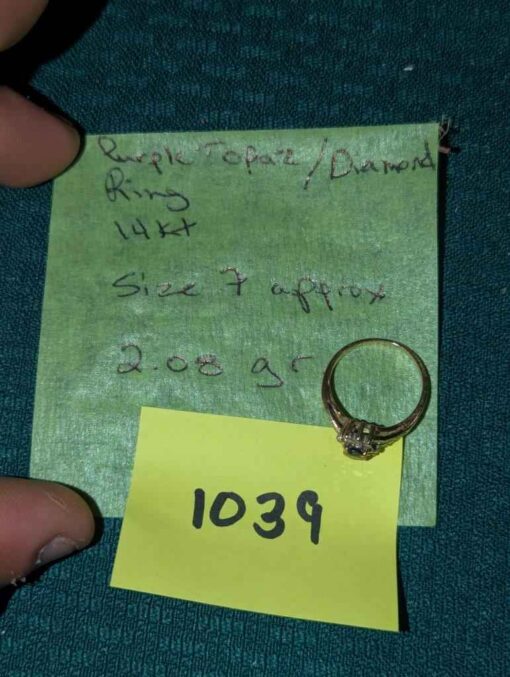 Purple Topaz / Diamond
Ring
14kt
Size 7 approx
2.08 gr
1039